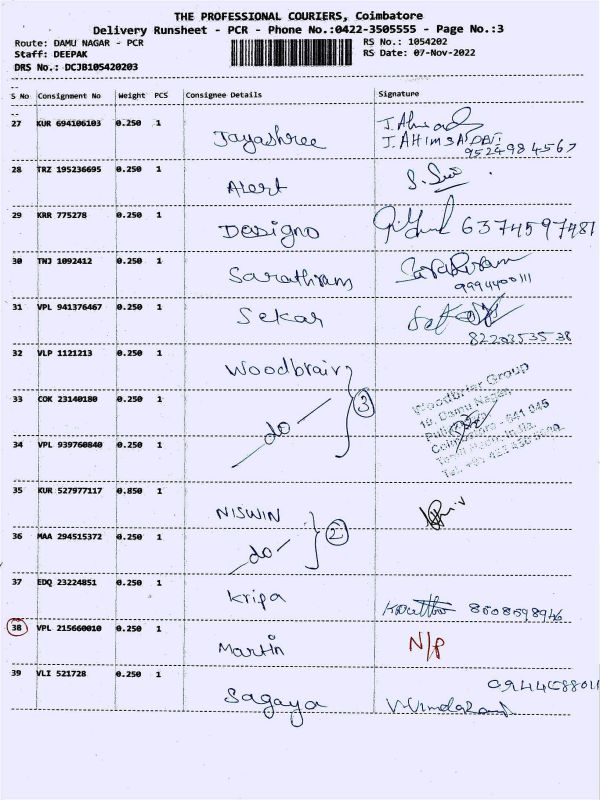 THE PROFESSIONAL COURIERS, Coimbatore
Delivery Runsheet - PCR - Phone No.:0422-3505555 - Page No.:3
Route: DAMU NAGAR - PCR
RS No.: 1054202
Staff: DEEPAK
RS Date: 07-Nov-2022
DRS No.: DCJB105420203
S No Consignment No Weight PCS Consignee Details Signature
27 KUR 694106103 0.250 1 Jayashree
J. AHIMSADEVI
9524984567
28 TRZ 195236695 0.250 1 Alert
29 KRR 775278 0.250 1 Designo 6374597481
30 TNJ 1092412 0.250 1 Sarathram
9994400111
31 VPL 941376467 0.250 1 Sekar
8220353538
32 VLP 1121213 0.250 1 Woodbrair
33 COK 23140180 0.250 1 do 3
Woodbriar Group
19, Damu Nagar,
Coimbatore - 641 045
Tamil Nadu, India.
34 VPL 939760840 0.250 1
35 KUR 527977117 0.850 1 NISWIN
36 MAA 294515372 0.250 1 do 2
37 EDQ 23224851 0.250 1 Kripa 8608598946
38 VPL 215660010 0.250 1 Martin N/P
39 VLI 521728 0.250 1 Sagaya